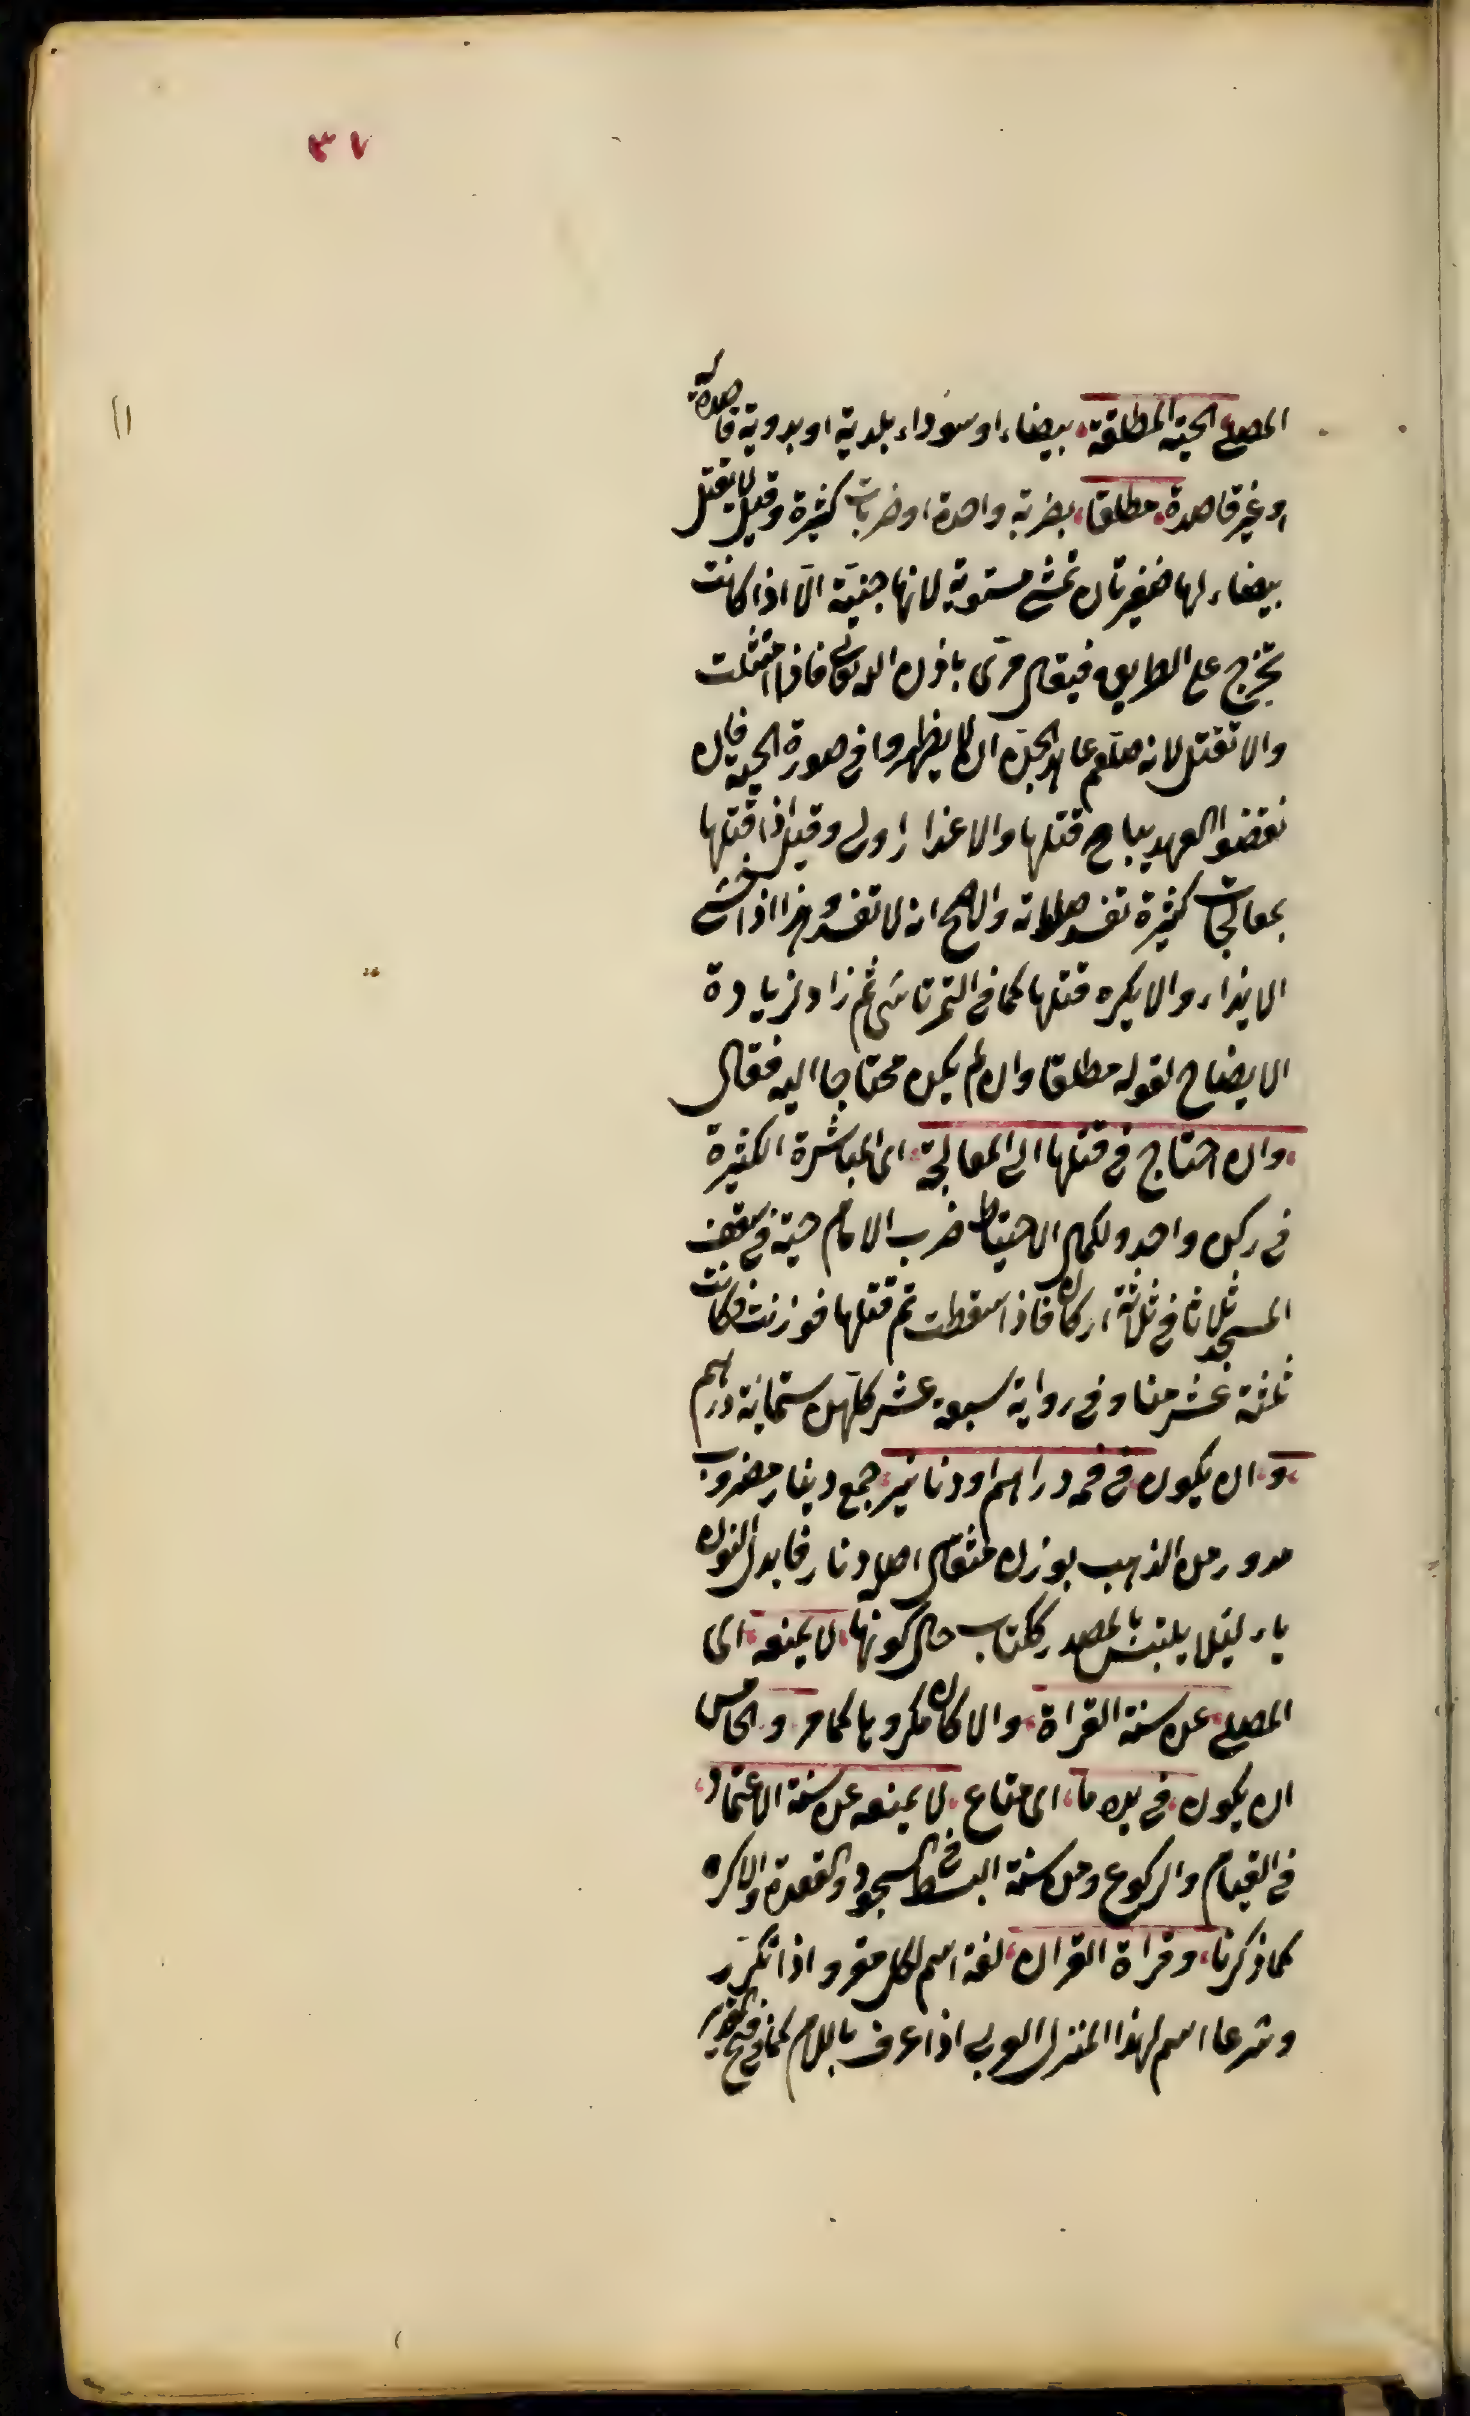 ٣٧
المصلي الحية المطلقة بيضاء او سوداء بلدية او بدوية قاصدة له
او غير قاصدة مطلقا بضربة واحدة او ضربات كثيرة وقيل لا يقتل
بيضاء لها ضفيرتان تمشي مستوية لانها جنيّة الّا اذا كانت
تخرج على الطريق فيقال مرّى باذن الله تعالى فاذا امتثلت
والا تقتل لانه صلعم عاهد الجن ان لا يظهروا في صورة الحية فان
نقضوا العهد يباح قتلها والاعذار اولى وقيل اذا قتلها
بمعالجات كثيرة تفسد صلاته والاصح انه لا تفسد وهذا اذا خشي
الايذاء والا يكره قتلها كما في التمرتاشي ثم زاد لزيادة
الايضاح لقوله مطلقا وان لم يكن محتاجا اليه فقال
وان احتاج في قتلها الى المعالجة اى المباشرة الكثيرة
في ركن واحد ولكمال الاحتياط ضرب الامام حية في سقف
المسجد ثلاثا في ثلاثة اركان فاذا سقطت ثم قتلها فوزنت وكانت
ثلثة عشر منا وفي رواية سبعة عشر كلّهن ستمائة دراهم
و ان يكون في فمه دراهم او دنانير جمع دينار مضروب
مدور من الذهب بوزن مثقال اصله دنار فابدل النون
ياء لئلا يلتبس بالمصدر ككتاب حال كونها لا يمنعه اى
المصلي عن سنة القراة والا كان مكروها كما مر و الخامس
ان يكون في يده ما اى متاع لا يمنعه عن سنة الاعتماد
في القيام والركوع ومن سنة البسط في السجود والقعدة والا كره
كما ذكرنا وقراة القران لغة اسم لكل مقرو اذا تكرّر
وشرعا اسم لهذا المنزل العربي اذا عرف باللام كما في فتح القدير